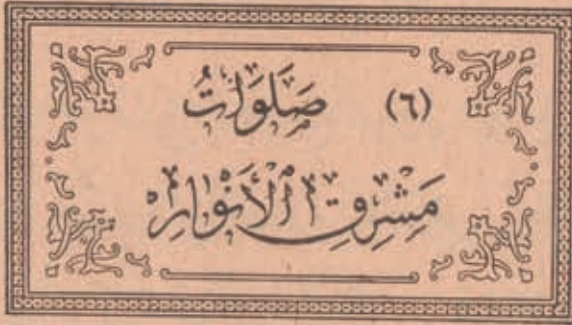 (٦) صَلَوَاتُ
مَشْرِقِ ٱلْأَنْوَارِ